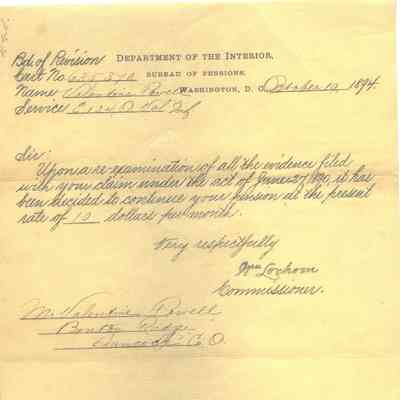 Bd. of Revision
DEPARTMENT OF THE INTERIOR,
Cert. No.
BUREAU OF PENSIONS,
Name Valentine Powell
WASHINGTON, D. C. October 12, 1894.
Service
Sir:
Upon a re-examination of all the evidence filed
with your claim under the act of June 27, 1890, it has
been decided to continue your pension at the present
rate of 12 dollars per month.
Very respectfully
Wm Lochren
Commissioner.
Mr. Valentine Powell
Ridge
Hancock Co. O.